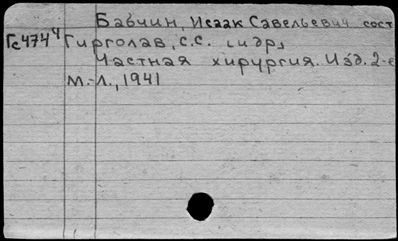 Бабчин, Исаак Савельевич сост
Гс474ч Гирголав, С.С. и др,
Частная хирургия. Изд. 2-е
М.-Л., 1941